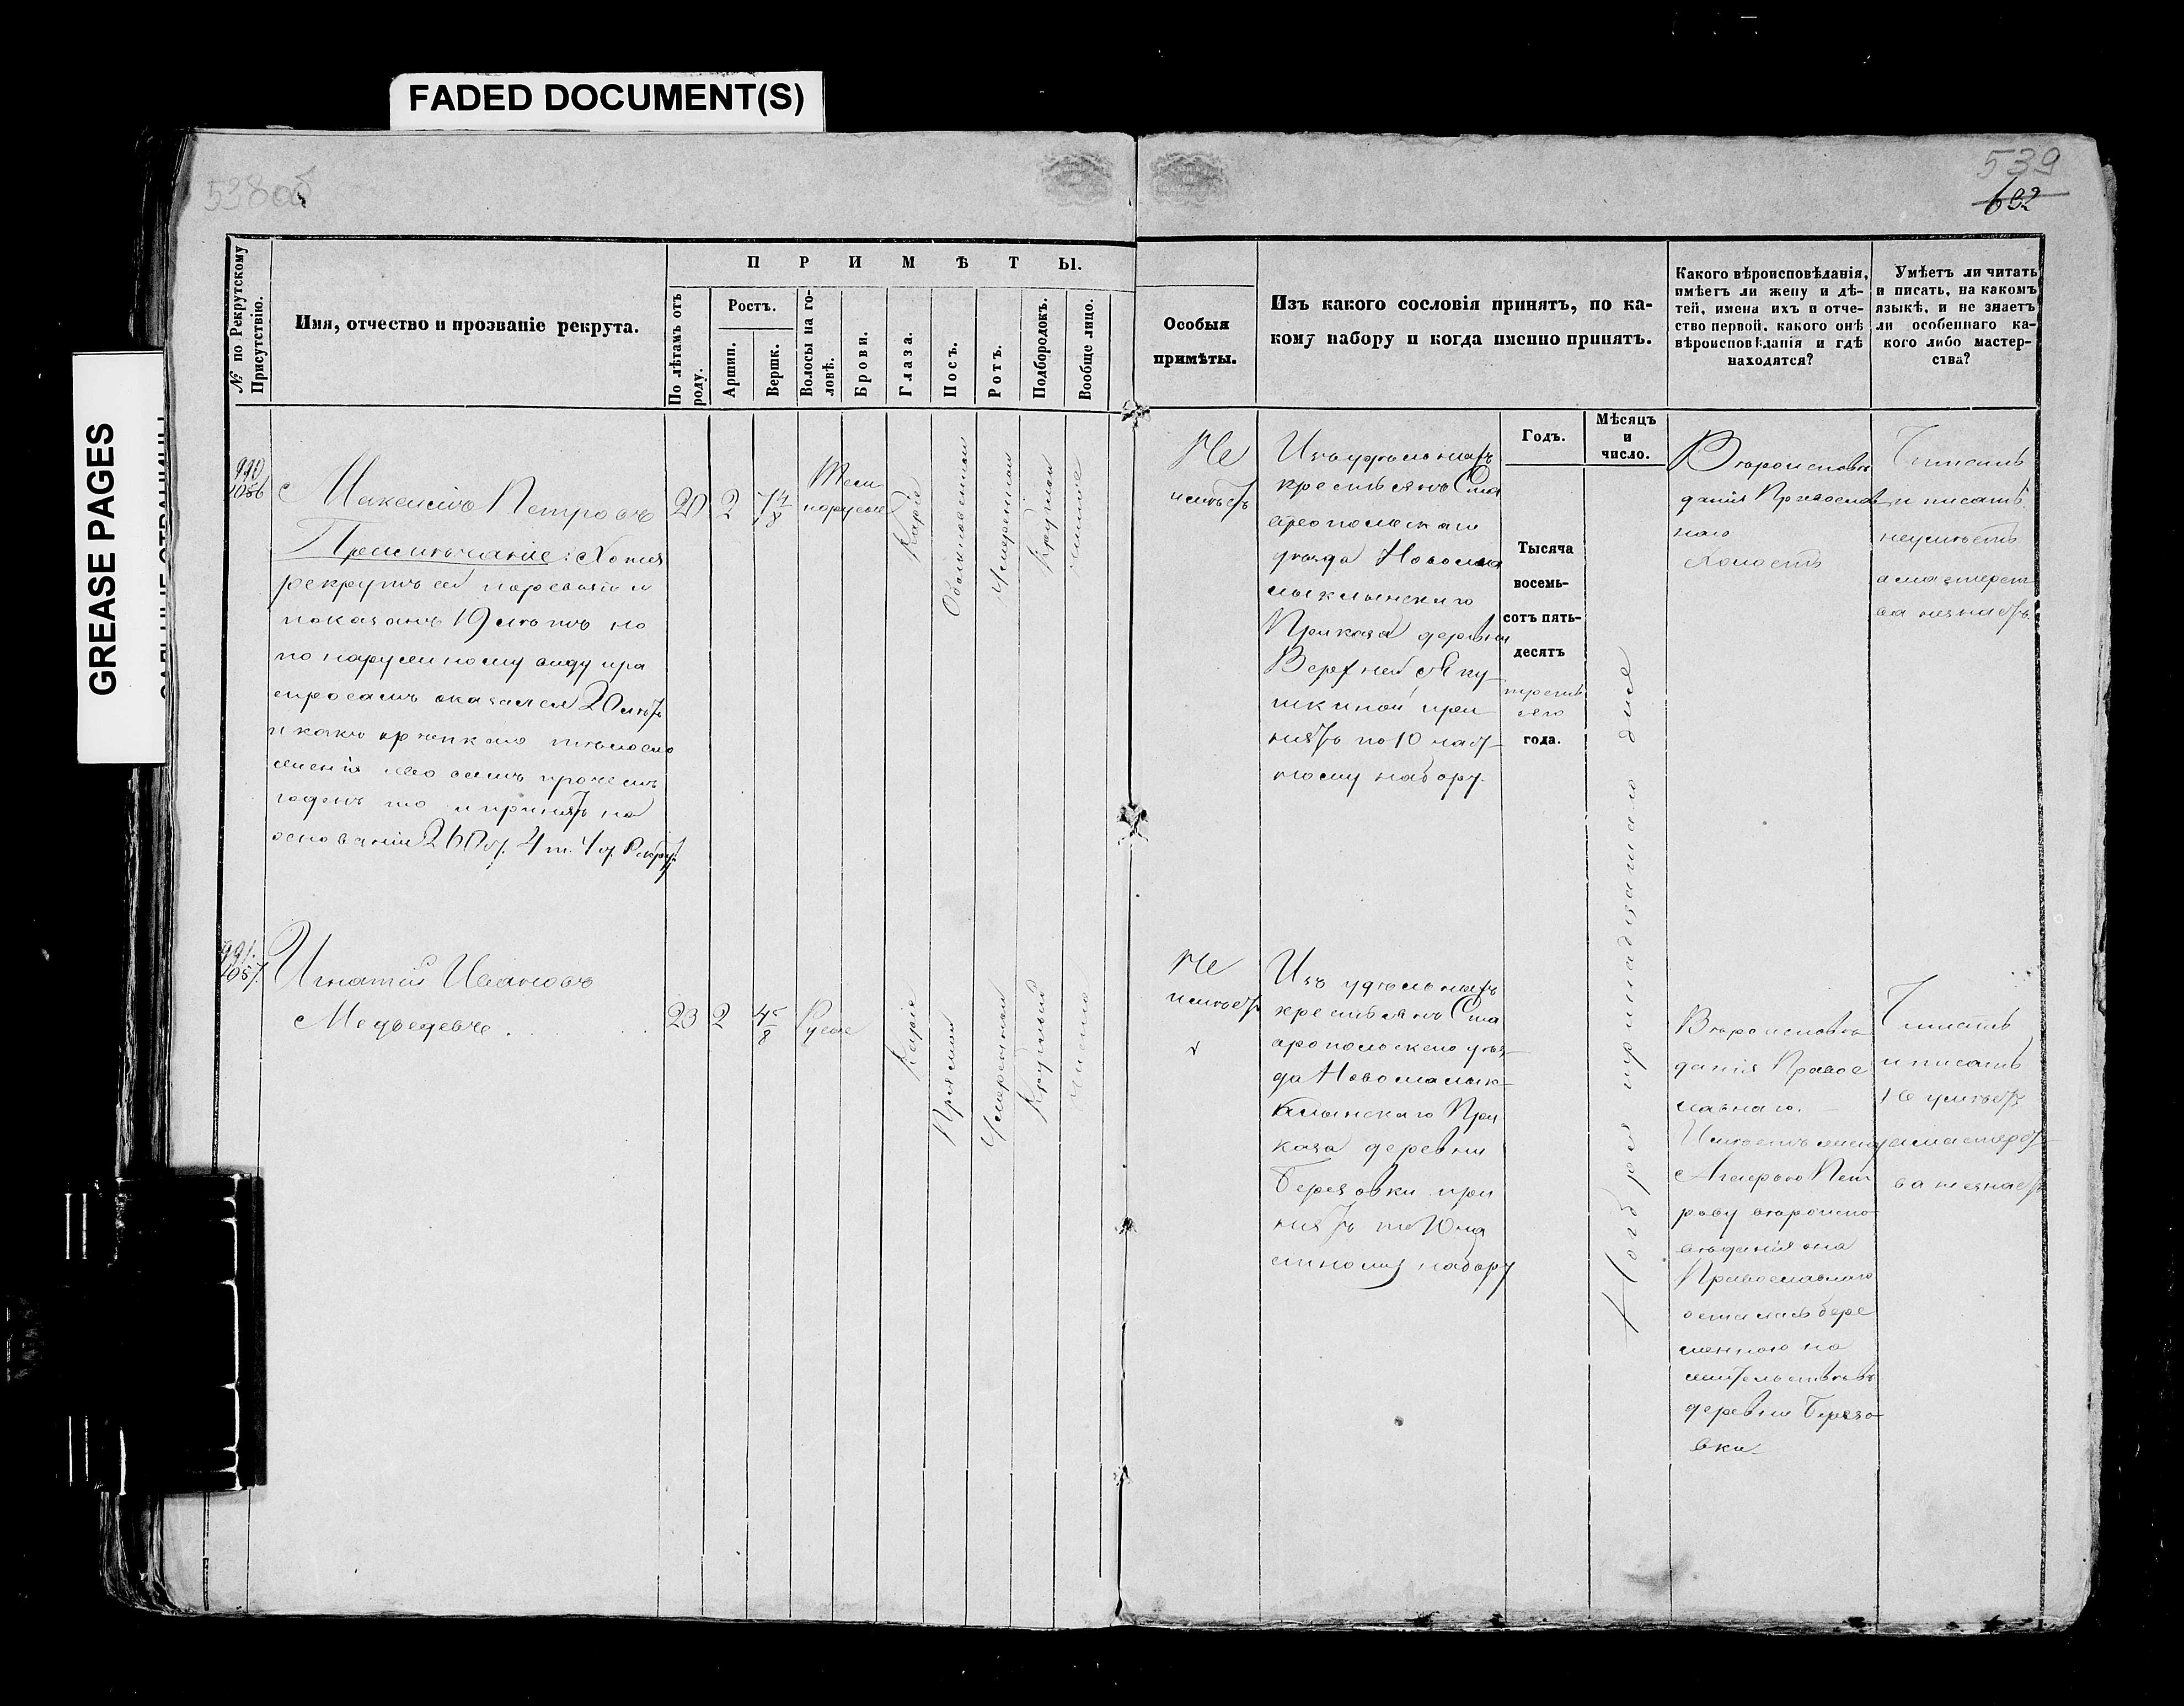 FADED DOCUMENT(S)
GREASE PAGES
538об
539
632
№ по Рекрутскому Присутствію.
Имя, отчество и прозваніе рекрута.
ПРИМѢТЫ.
По лѣтамъ отъ роду.
Ростъ.
Аршин.
Вершк.
Волосы на го-
ловѣ.
Брови.
Глаза.
Носъ.
Ротъ.
Подбородокъ.
Вообще лицо.
Особыя
примѣты.
Изъ какого сословія принятъ, по ка-
кому набору и когда именно принятъ.
Какого вѣроисповѣданія,
имѣетъ ли жену и дѣ-
тей, имена ихъ и отче-
ство первой, какого онѣ
вѣроисповѣданія и гдѣ
находятся?
Умѣетъ ли читать
и писать, на какомъ
языкѣ, и не знаетъ
ли особеннаго ка-
кого либо мастер-
ства?
Годъ.
Мѣсяцъ
и
число.
990
1056
Максимъ Петровъ
Примѣчаніе: Хотя
рекрутъ сей по ревизіи и
показанъ 19 лѣтъ но
по наружному виду и ра
спросамъ оказался 20 лѣтъ
и какъ крѣпкаго тѣлосло
женія и во всемъ прочемъ
годенъ то и принятъ на
основаніи 260 ст. 4 т. 1 ч. Рекрут.
20
2
7 4/8
Тем
норусые
Каріе
Обыкновенный
Умеренный
Круглый
чистое
Не
имѣетъ
Изъ удѣльныхъ
крестьянъ Ста
вропольскаго
уѣзда Новома
лыклинскаго
Приказа деревни
Верхней Яку-
шкиной при
нятъ по 10 част-
ному набору.
Тысяча
восемь-
сотъ пять-
десятъ
третья
его
года.
Ноября тринадцатаго дня
Вѣроисповѣ
данія Православ
наго
Холостъ
Читать
и писать
неумѣетъ
а мастерст
ва незнаетъ.
991.
1057.
Игнатій Ивановъ
Медведевъ.
23
2
4 5/8
Русые
Каріе
Прямой
Умеренный
Круглый
чисто
Не
имѣетъ
Изъ удѣльныхъ
крестьянъ Ста
вропольскаго уѣз-
да Новомалык-
линскаго При
каза деревни
Березовки при
нятъ по 10 ча
стному набору
Вѣроисповѣ
данія Правос
лавнаго.
Имѣетъ жену
Агафью Пет
рову вѣроиспо-
вѣданія она
Православнаго
осталась бере
менною на
жительствѣ въ
деревни Березо-
вки.
Читать
и писать
не умѣетъ
а мастерст
ва незнаетъ